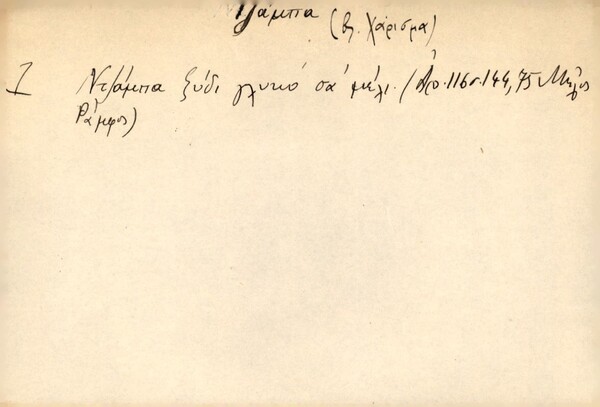 Τζάμπα (βλ. Χάρισμα)
1 Ντζάμπα ξύδι γλυκό σα μέλι. (Λυ. 116 σ. 144, 75 Μῆλος
Ράμφος)